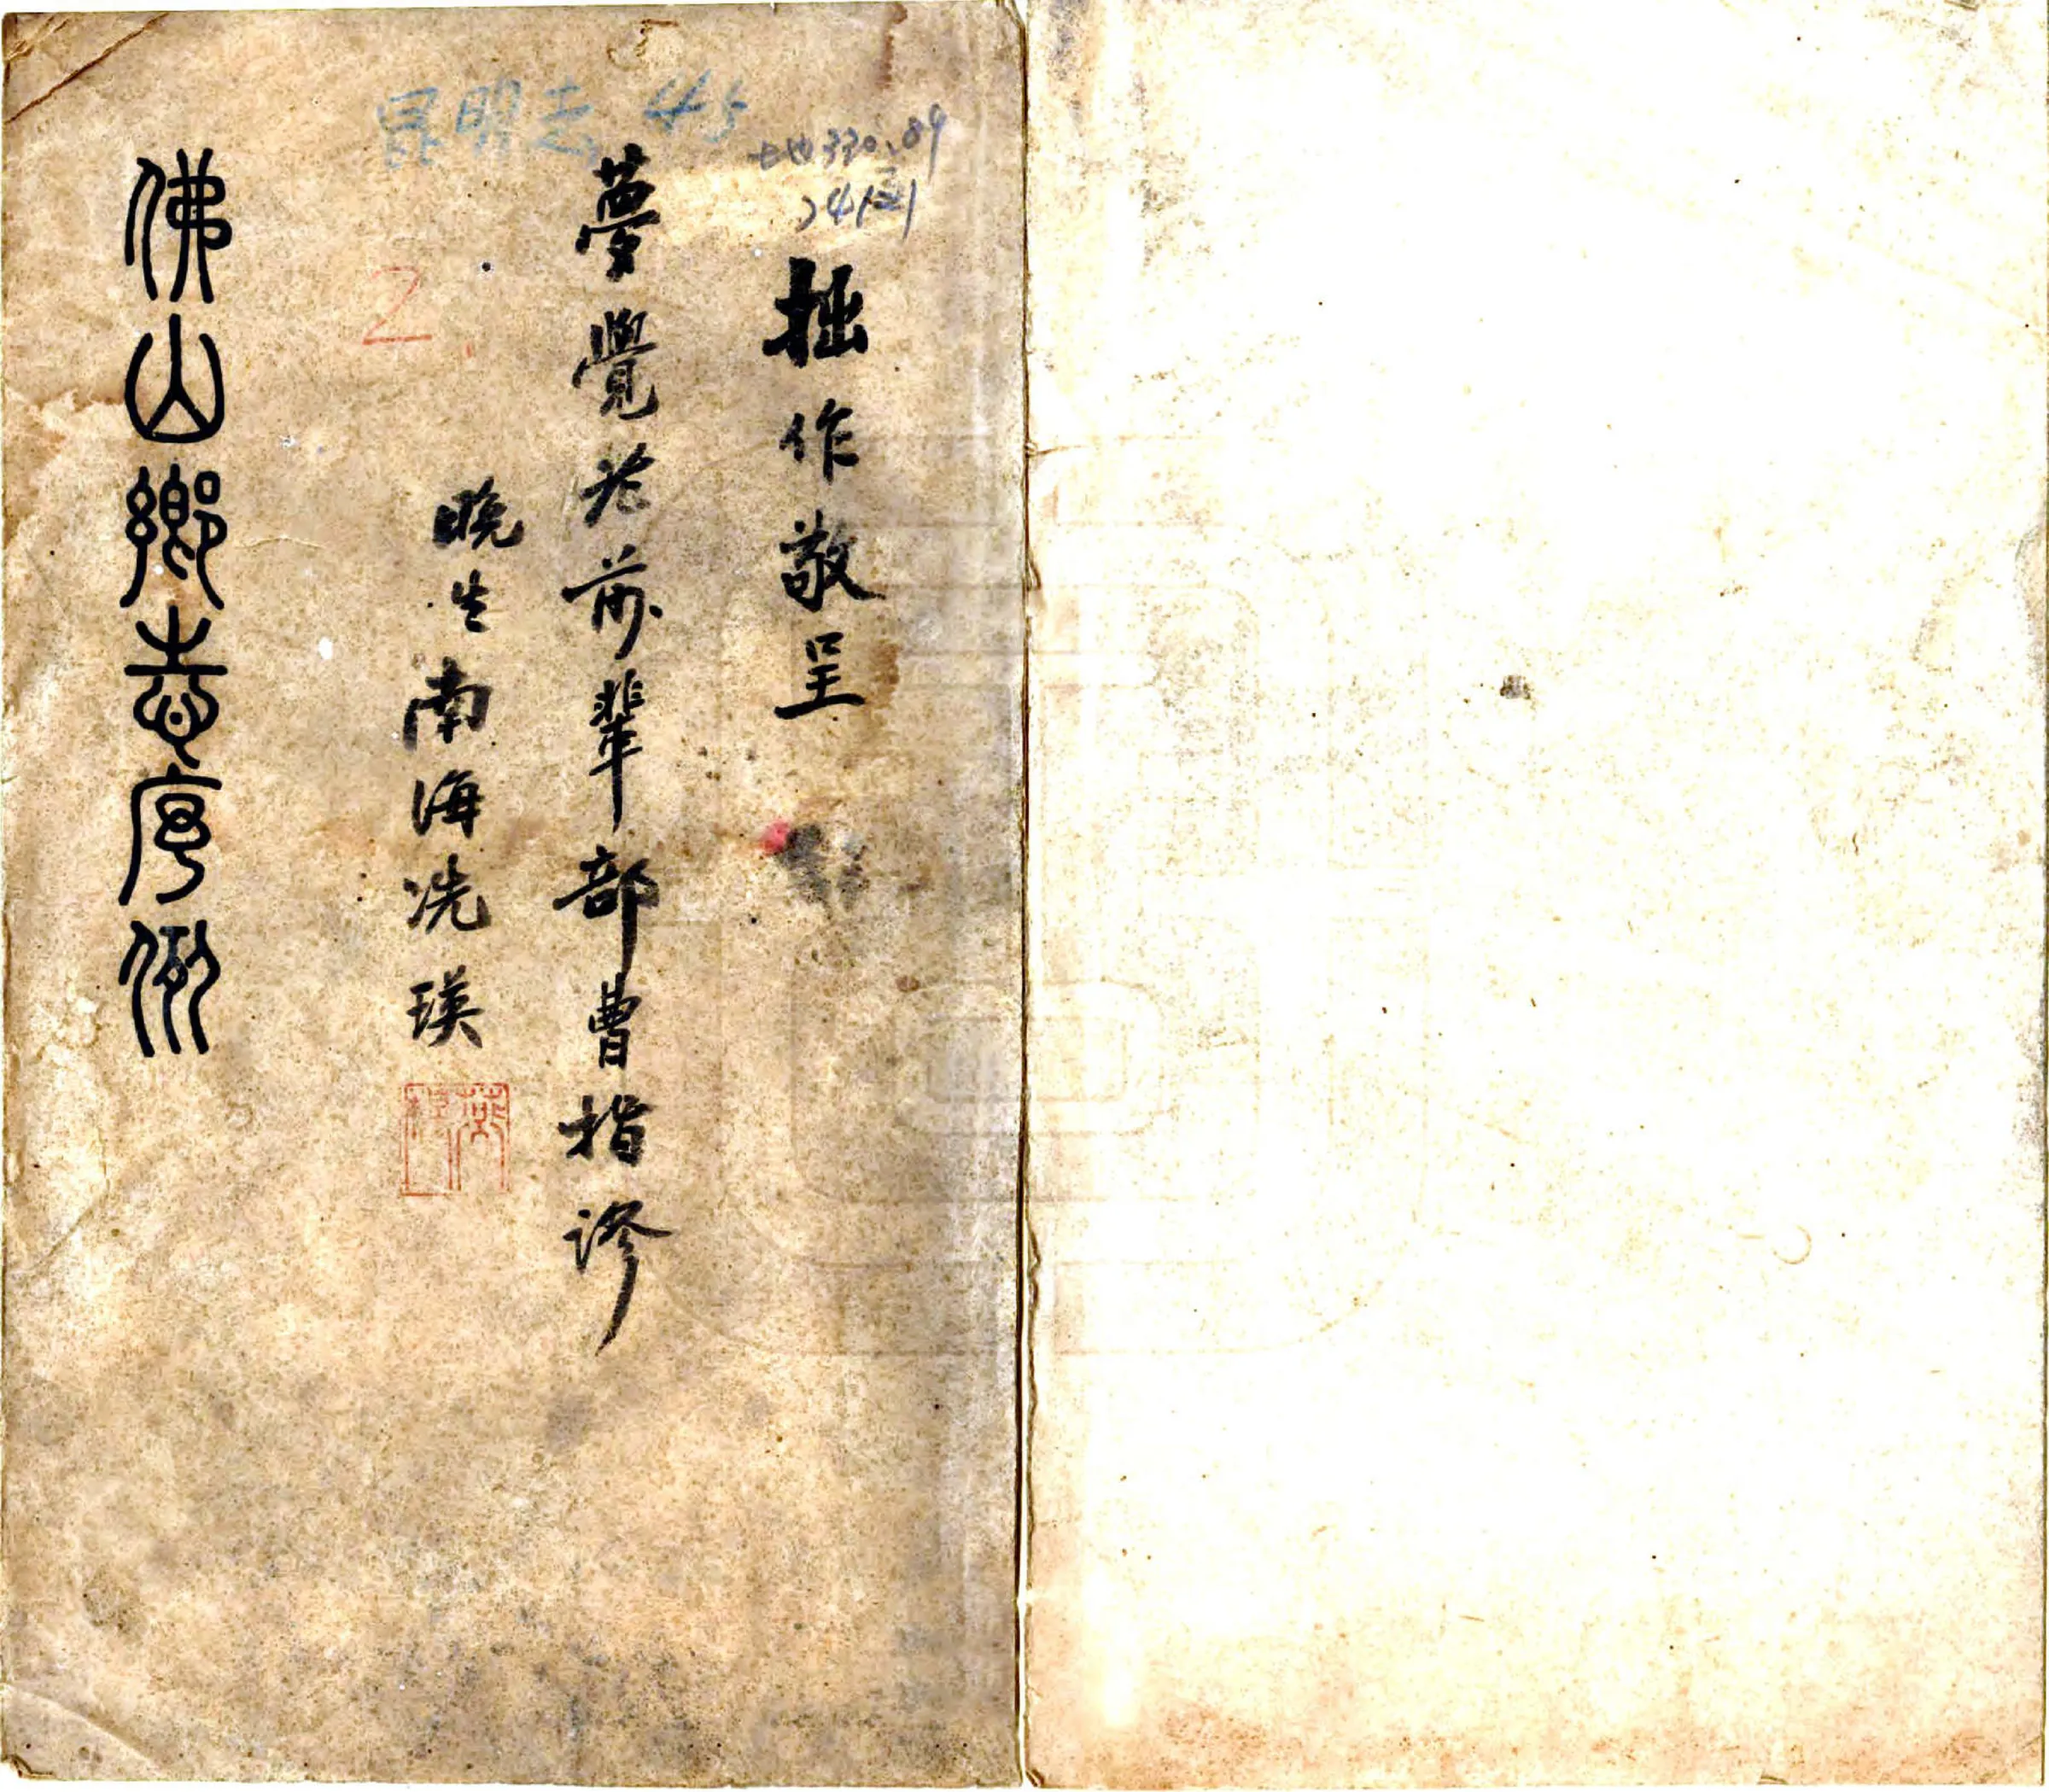 昆明志 45
地330.89
拙作敬呈
夢覺老前輩部曹指謬
晚生南海冼瑛
佛山鄉志序例
2